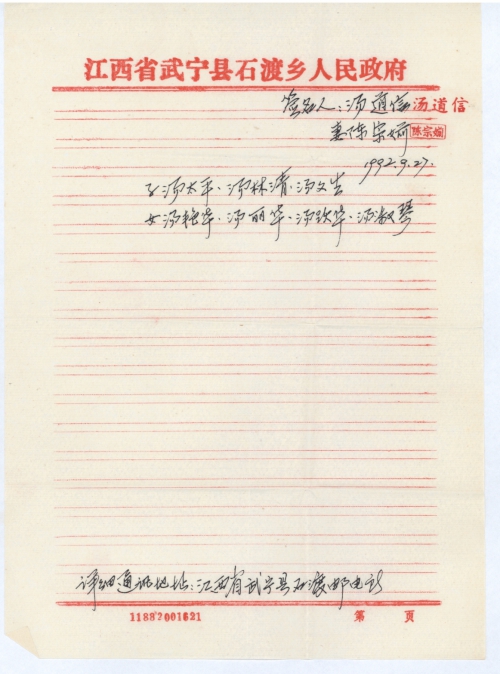 江西省武宁县石渡乡人民政府
签名人：汤道信 汤道信
妻陈宗娴 陈宗娴
1992.9.27.
子汤太平、汤林清、汤文生
女汤艳华、汤丽华、汤跃华、汤淑琴
详细通讯地址：江西省武宁县石渡邮电所
1188?001621 第 页